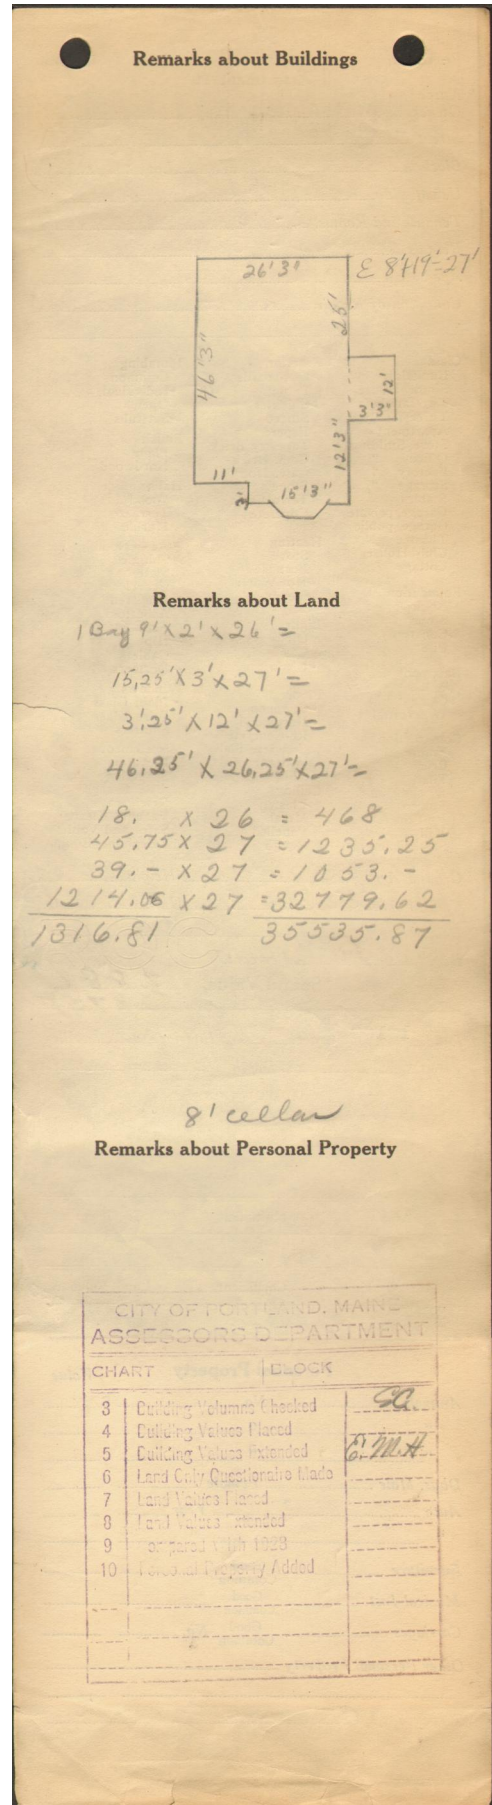 Remarks about Buildings
26'3" E 8'+19'=27'
25'
46'3"
12'
3'3"
12'3"
11'
3'
15'3"
Remarks about Land
1 Bay 9' x 2' x 26' =
15,25' x 3' x 27' =
3'.25' x 12' x 27' =
46.25' x 26.25' x 27' =
18. x 26 = 468
45.75 x 27 = 1235.25
39.- x 27 = 1053.-
1214.06 x 27 = 32779.62
1316.81 35535.87
8' cellar
Remarks about Personal Property
CITY OF PORTLAND, MAINE
ASSESSORS DEPARTMENT
CHART BLOCK
3 Building Volumns Checked
4 Building Values Placed
5 Building Values Extended E.M.H
6 Land Only Questionaire Made
7 Land Values Placed
8 Land Values Extended
9 Compared With 1923
10 Personal Property Added